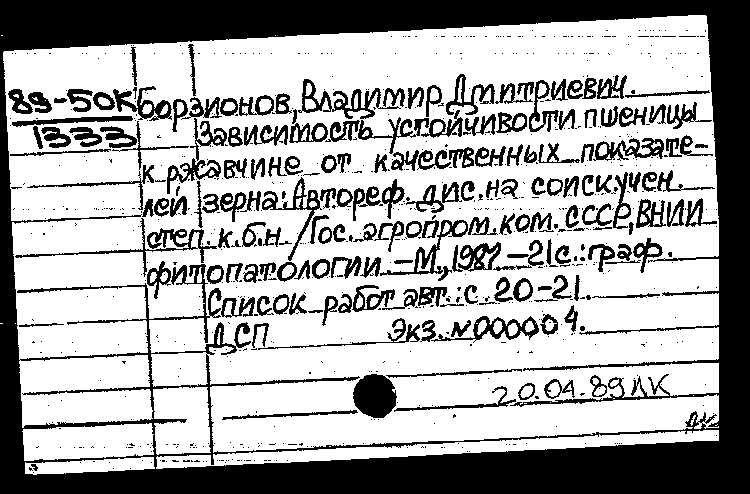 89-50К Борзионов, Владимир Дмитриевич.
1333 Зависимость устойчивости пшеницы
к ржавчине от качественных показате-
лей зерна: Автореф. дис. на соиск. учен.
степ. к.б.н. / Гос. агропром. ком. СССР, ВНИИ
фитопатологии. – М., 1987 – 21с.: граф.
Список работ авт.: с. 20-21.
ДСП Экз. №000004.
20.04.89 ЛК